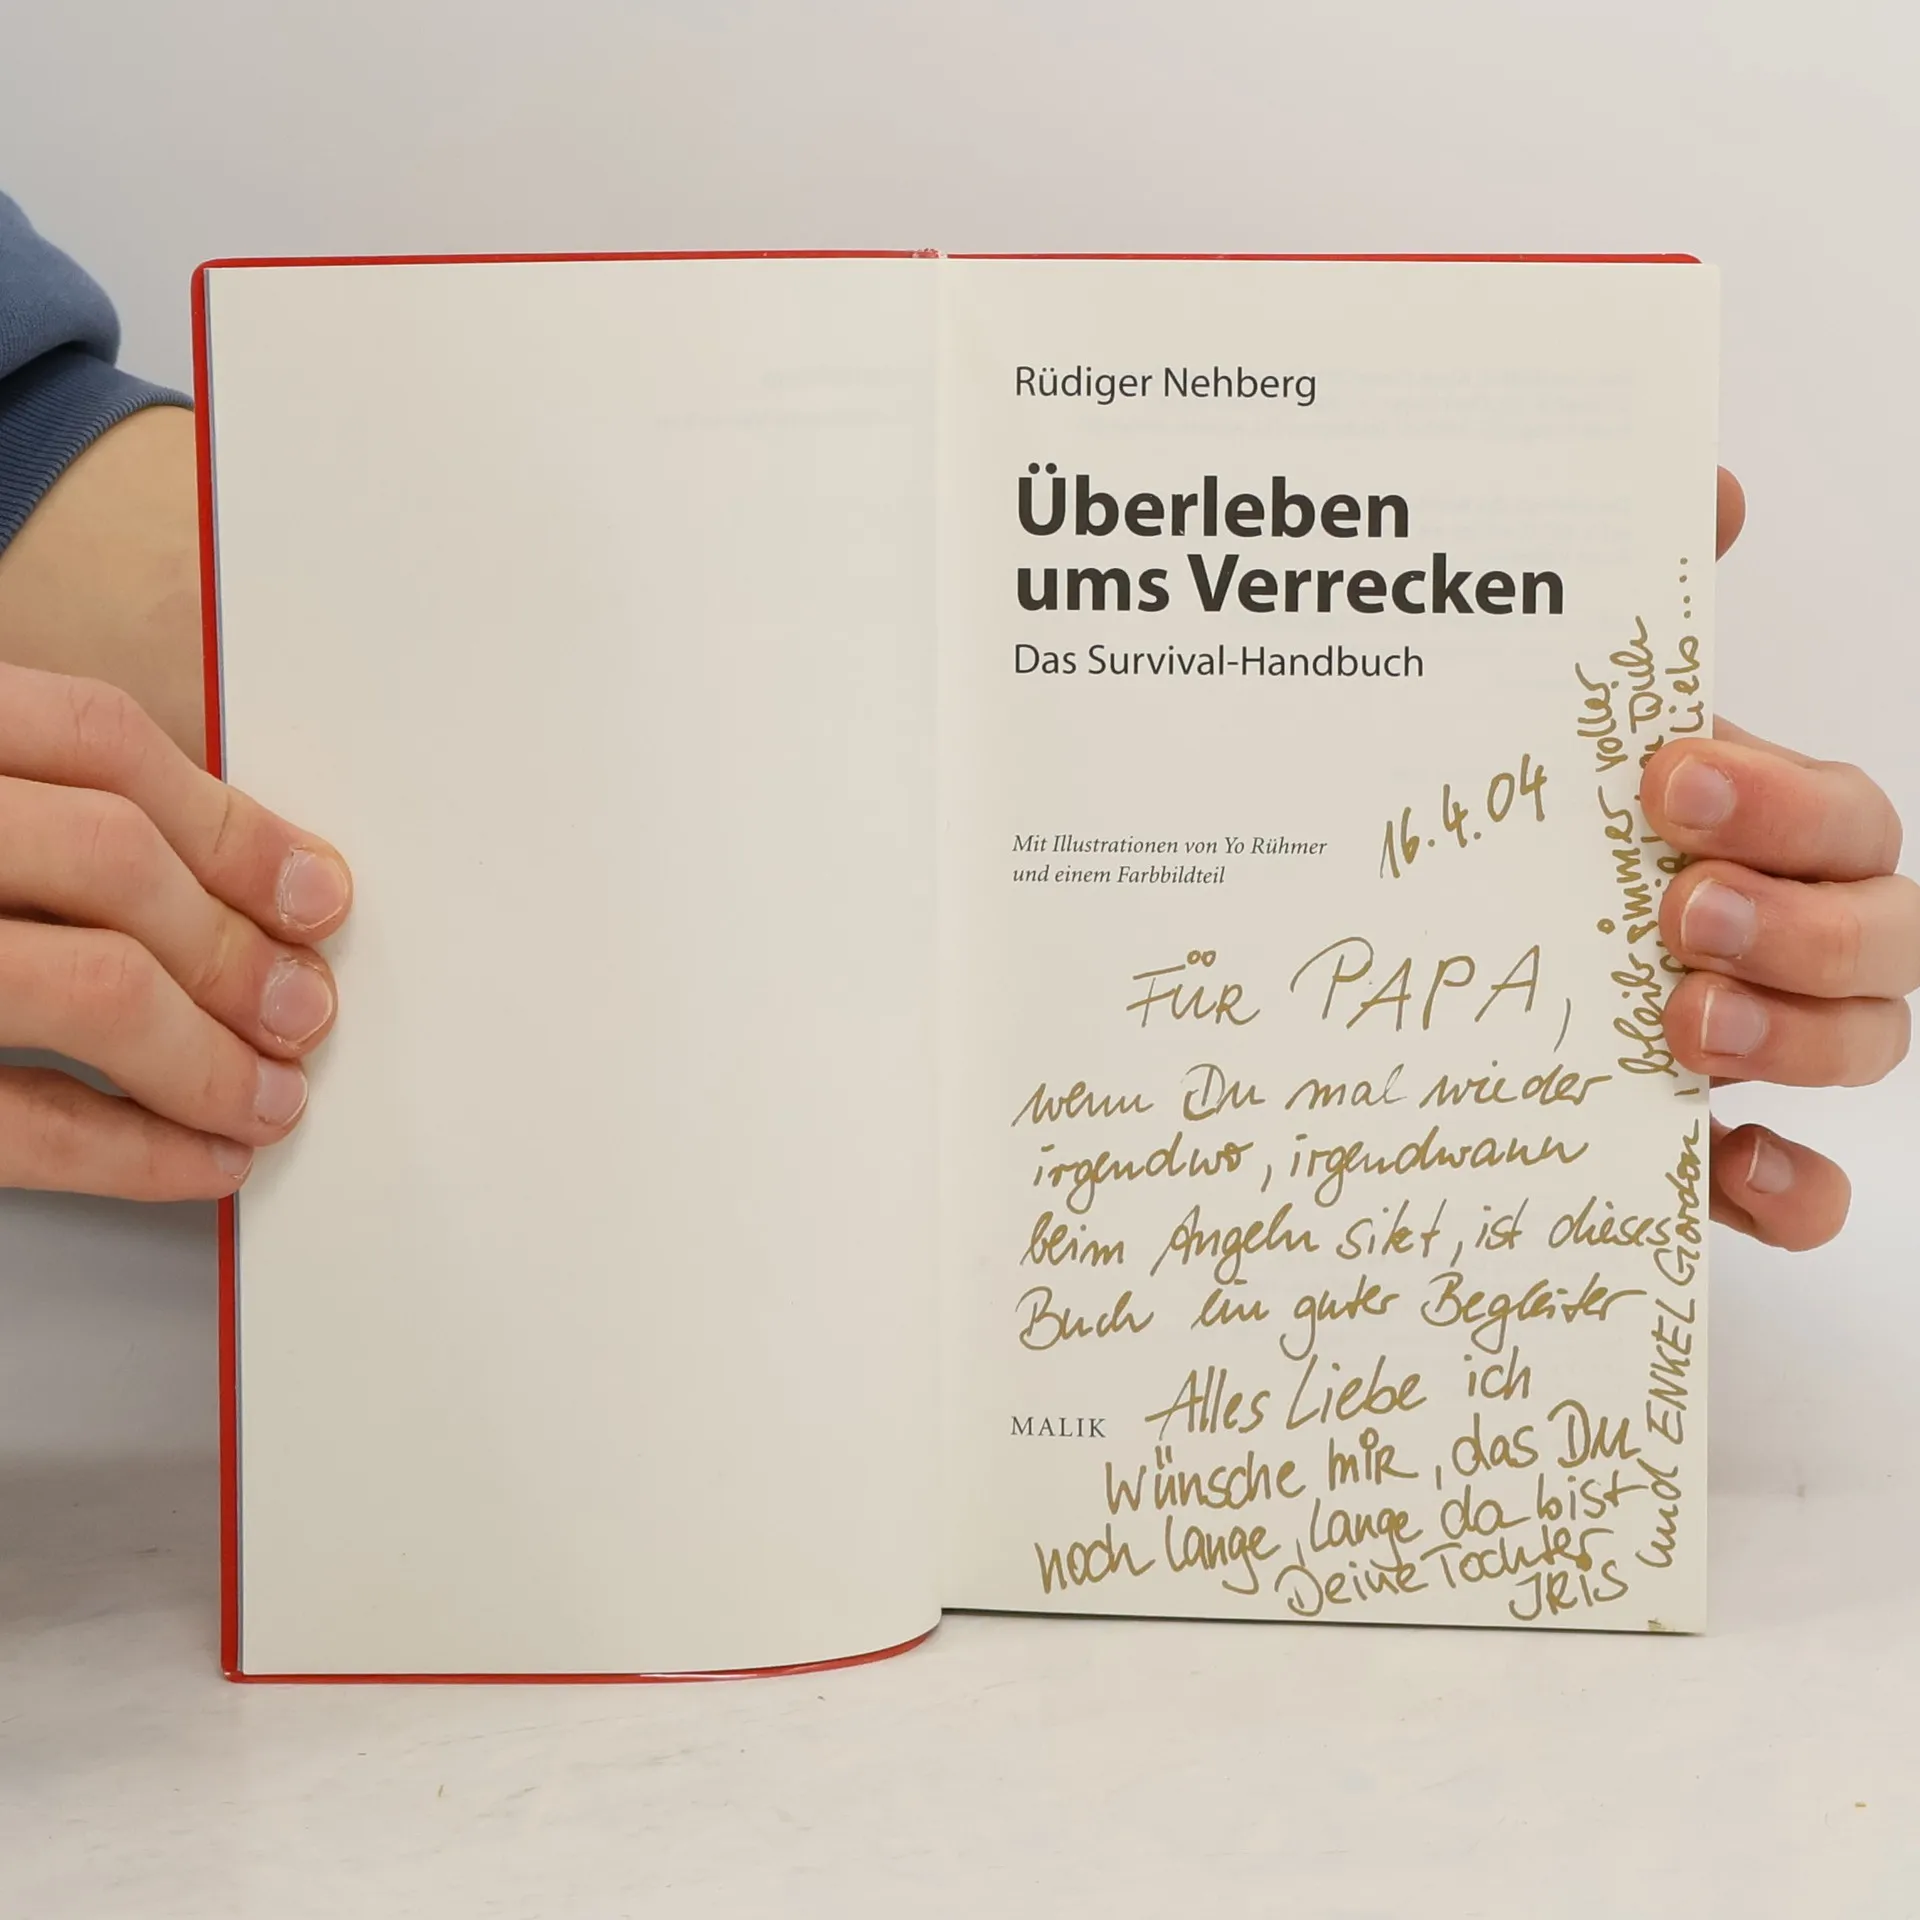 Rüdiger Nehberg
Überleben
ums Verrecken
Das Survival-Handbuch
Mit Illustrationen von Yo Rühmer
und einem Farbbildteil
16.4.04
FÜR PAPA,
wenn Du mal wieder
irgendwo, irgendwann
beim Angeln sitzt, ist dieses
Buch ein guter Begleiter
Alles Liebe ich
wünsche mir, das Du
noch lange, lange da bist
Deine Tochter
IRIS
und ENKEL Gordon
bleib immer voller
lieb.....
MALIK